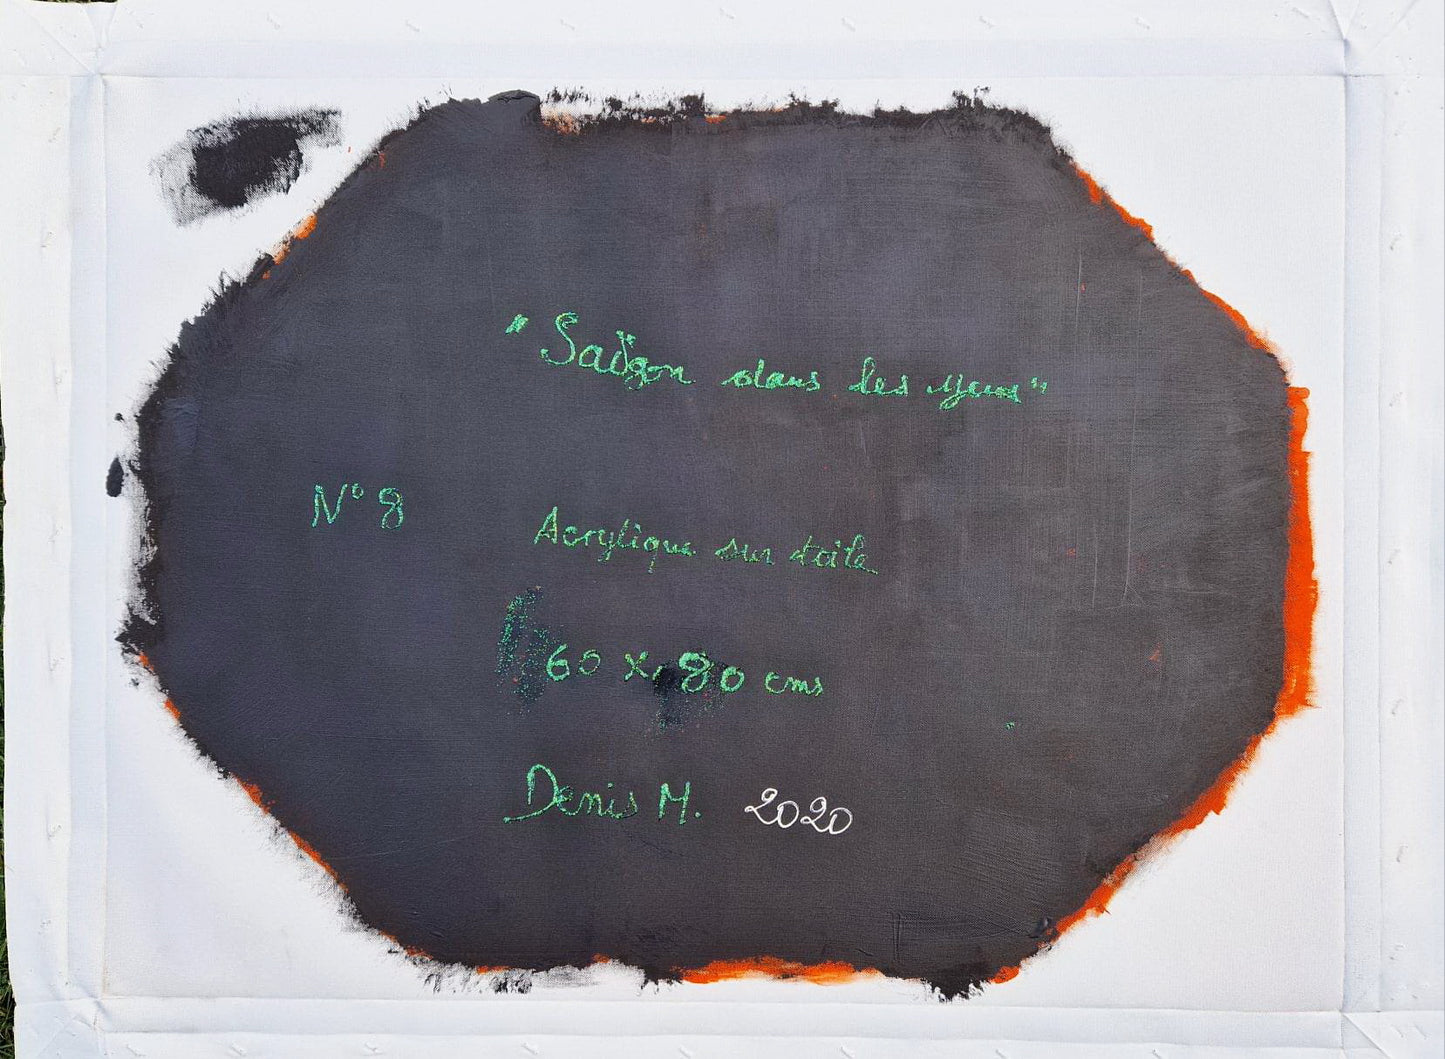 "Saïgon dans les yeux"
N° 8
Acrylique sur toile
60 x 80 cms
Denis M. 2020